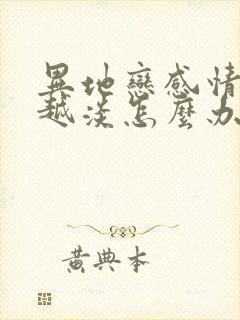 異地戀感情
越淡怎麼办
黃典本